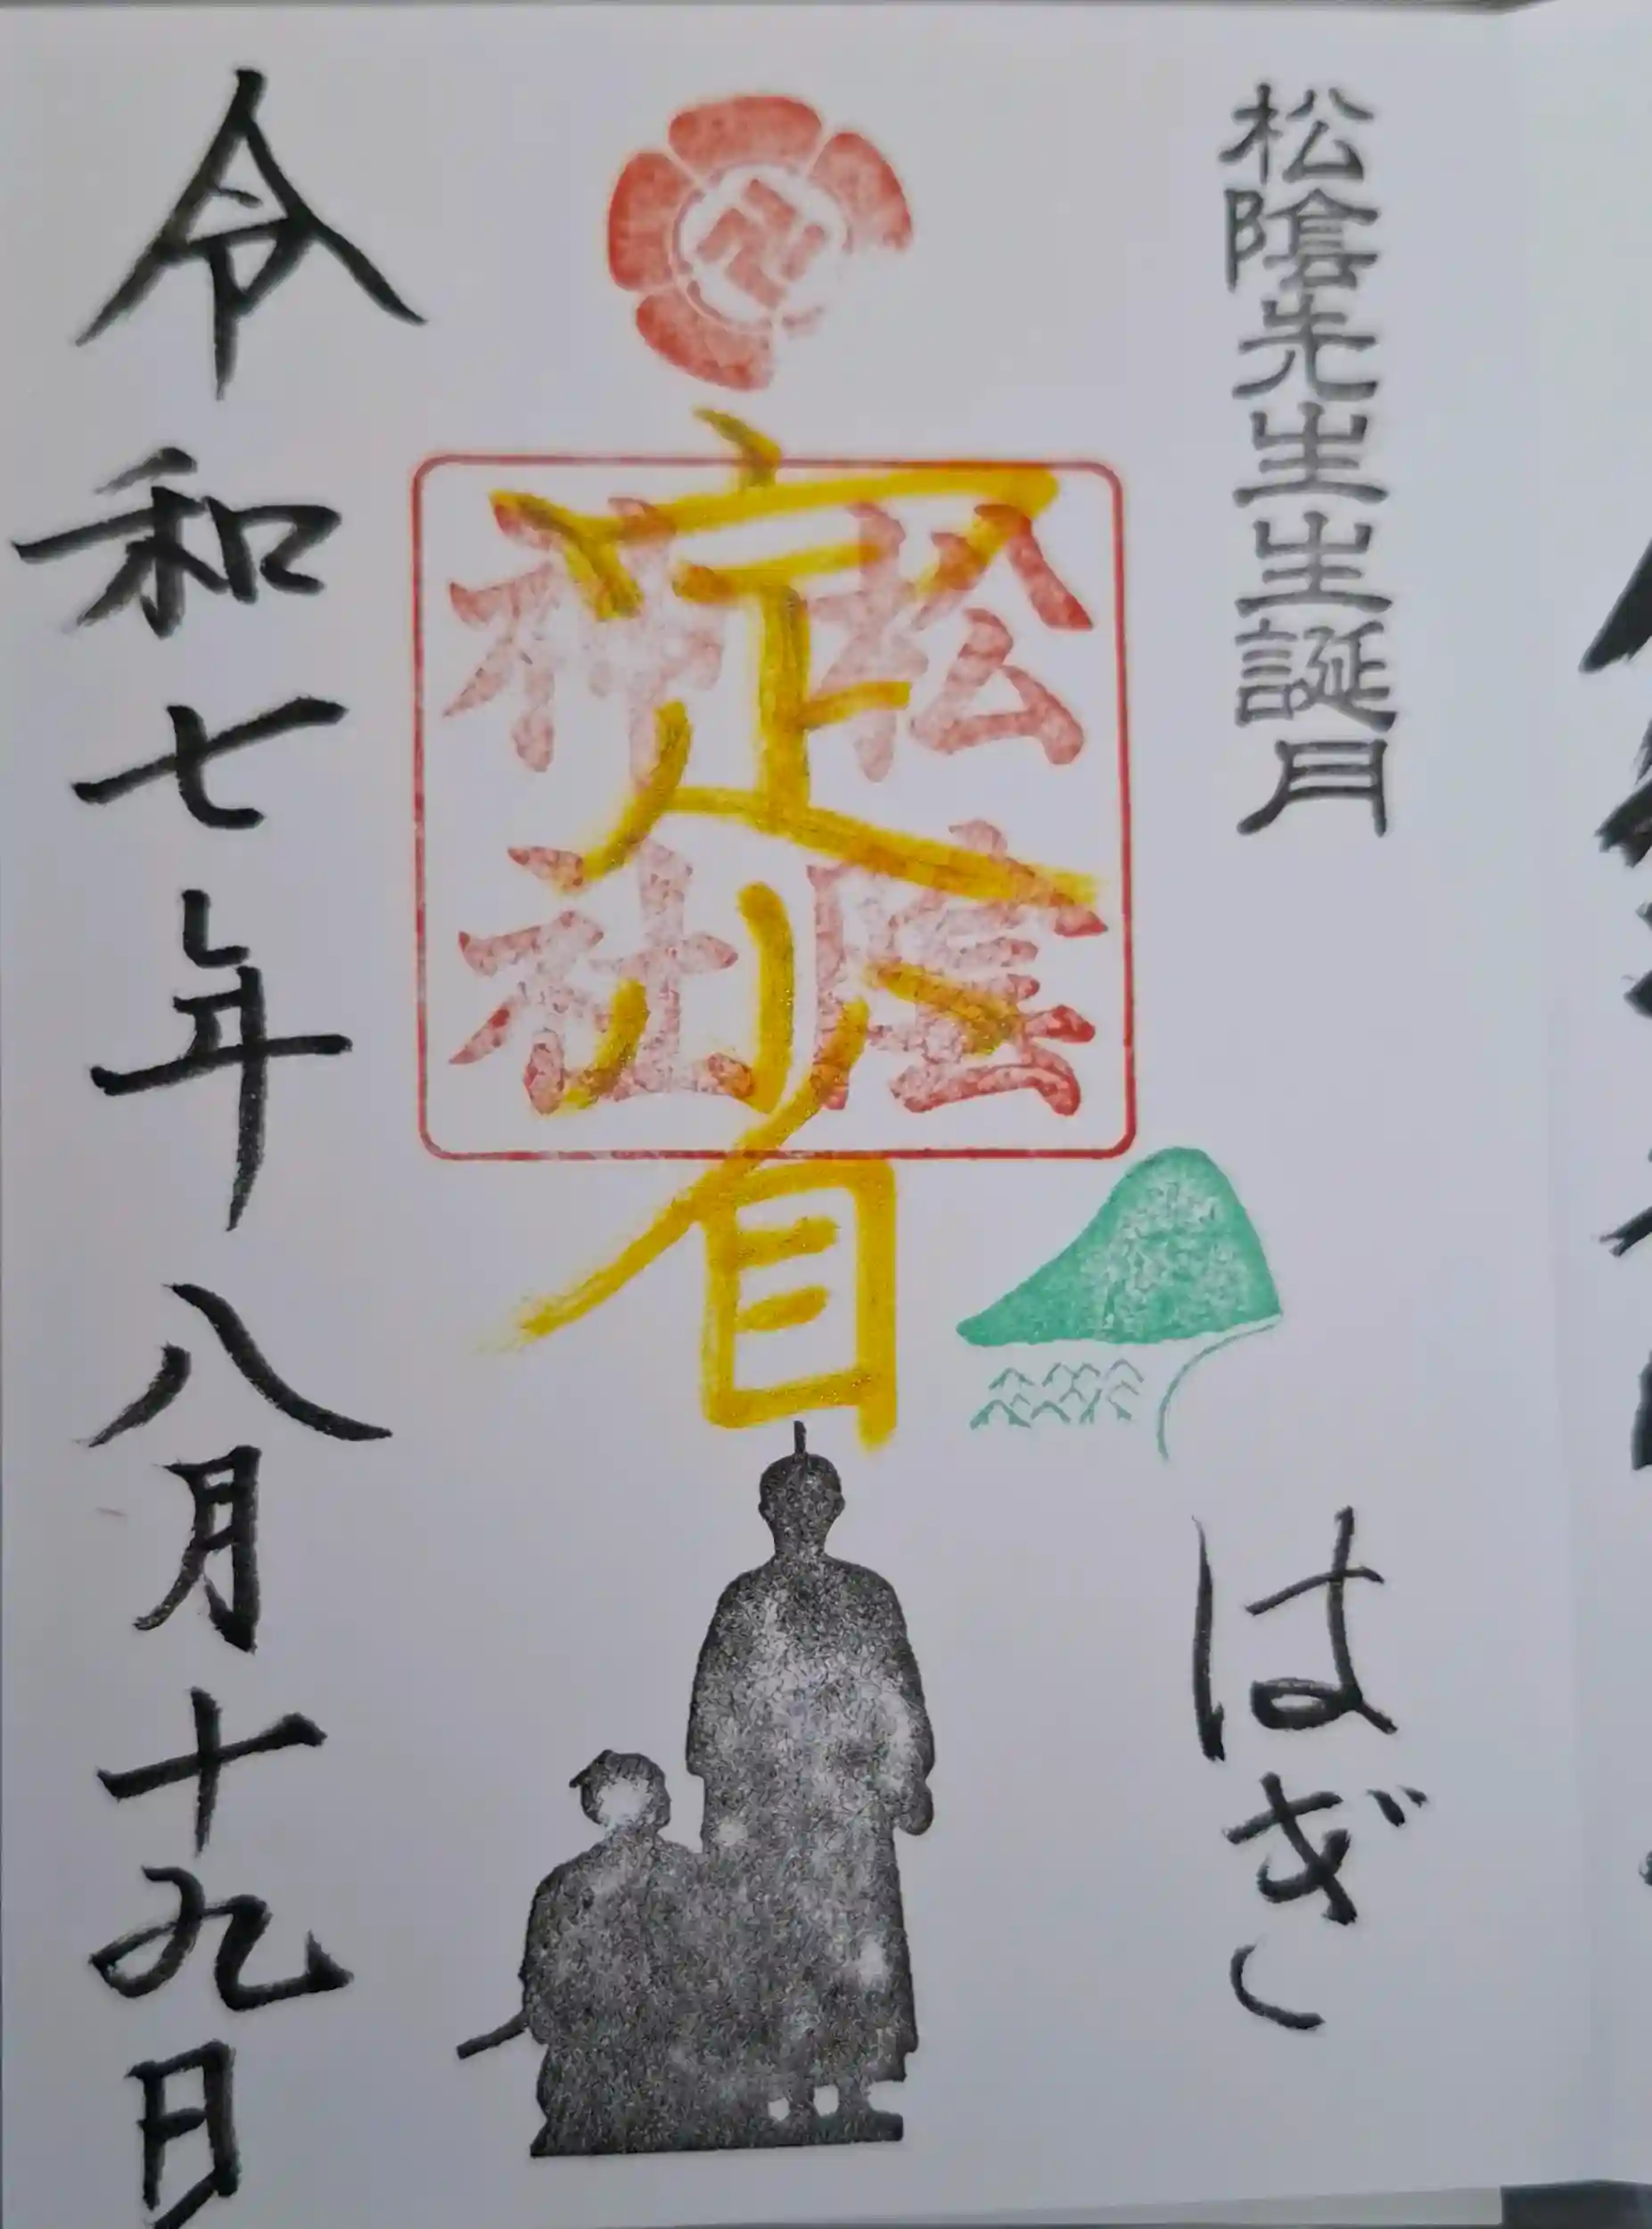 松陰先生生誕月
はぎし
定省
松陰
神社
令和七年八月十九日